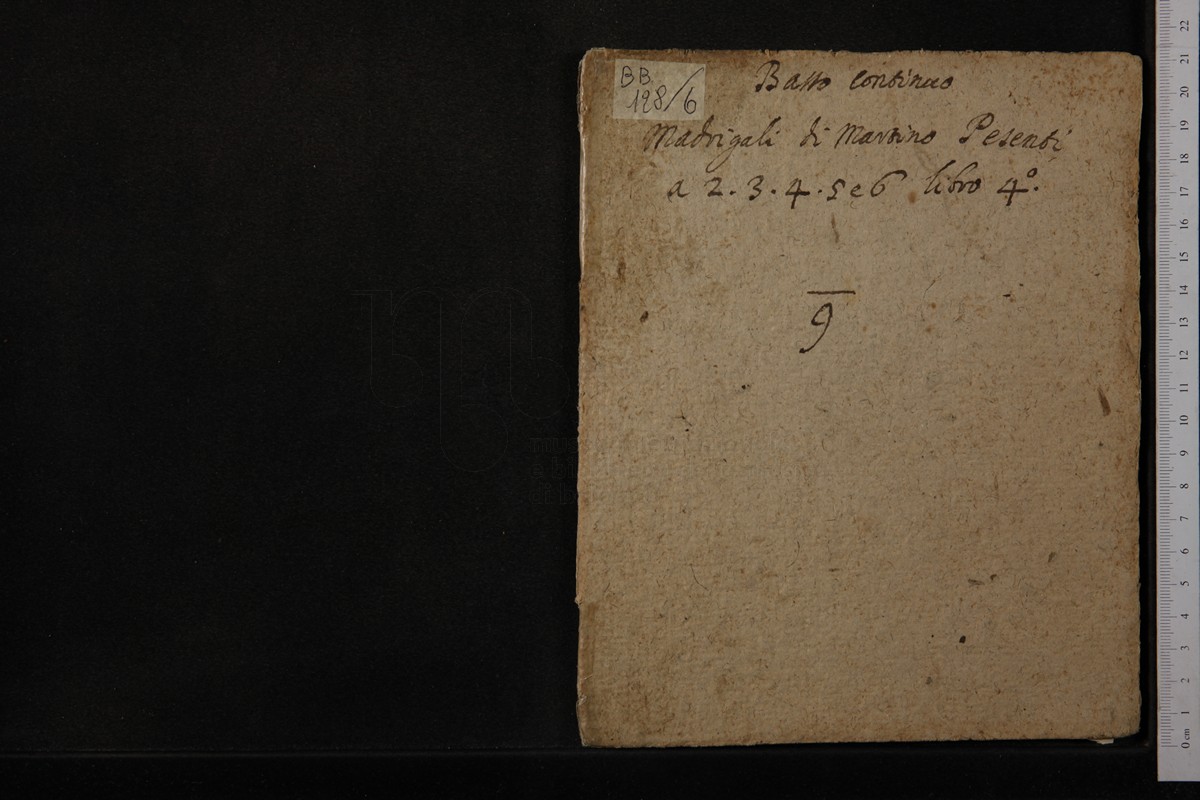 BB
128/6
Basso continuo
Madrigali di Martino Pesenti
a 2. 3. 4. 5 e 6 libro 4º.
9
22
21
20
19
18
17
16
15
14
13
12
11
10
9
8
7
6
5
4
3
2
1
0 cm